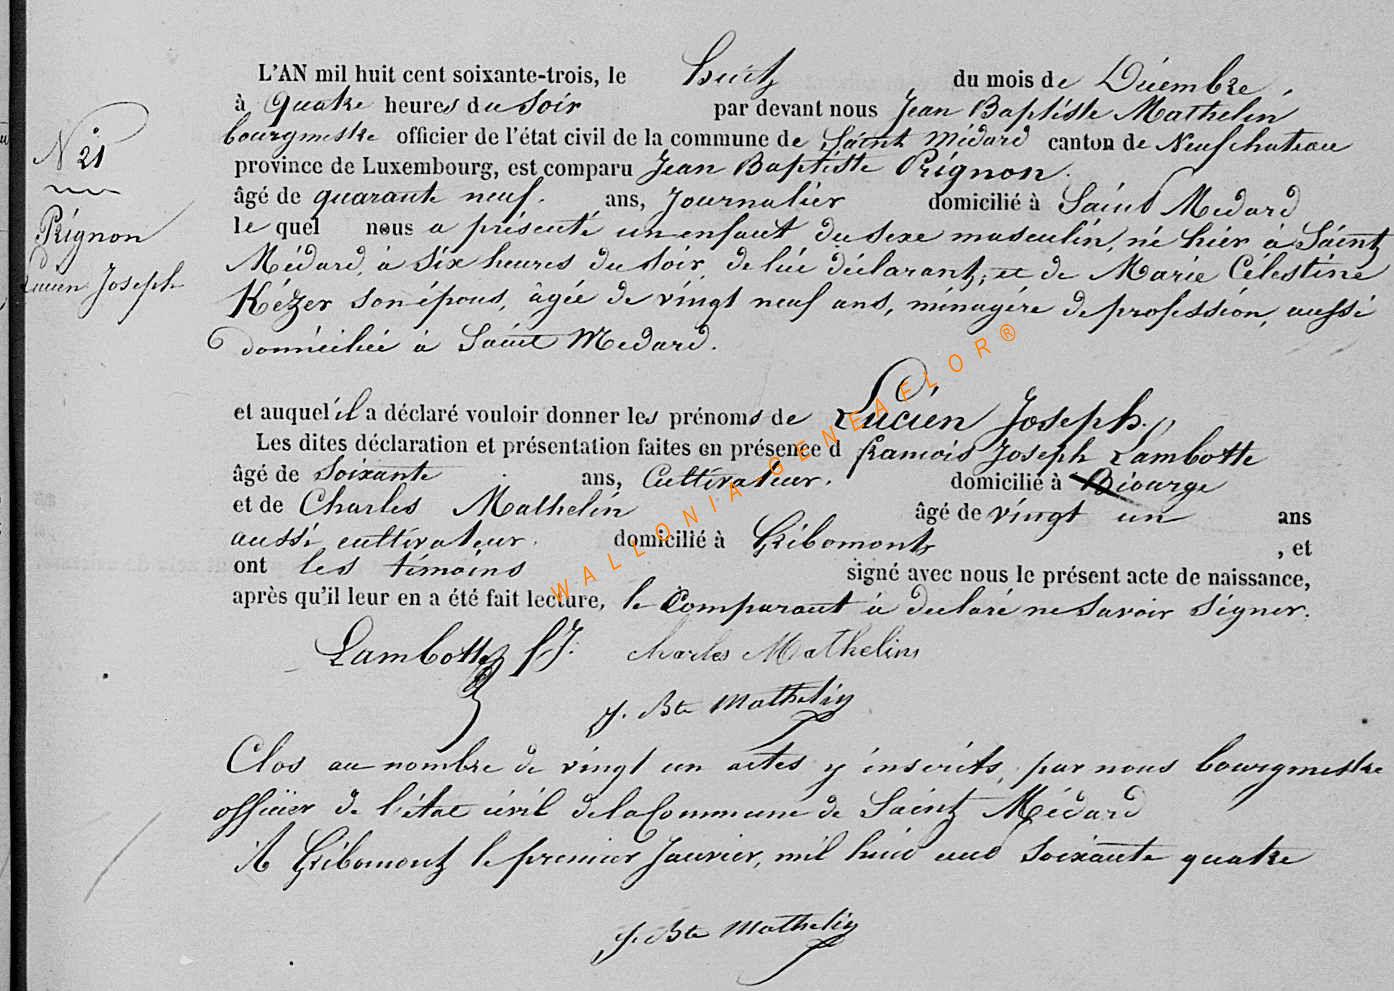 L'AN mil huit cent soixante-trois, le huit du mois de Décembre,
à quatre heures du soir par devant nous Jean Baptiste Mathelin
bourgmestre officier de l'état civil de la commune de Saint Médard canton de Neufchateau
province de Luxembourg, est comparu Jean Baptiste Prignon.
âgé de quarante neuf. ans, Journalier domicilié à Saint Médard
le quel nous a présenté un enfant du sexe masculin, né hier à Saint
Médard, à six heures du soir, de lui déclarant, et de Marie Célestine
Kézer son épous, âgée de vingt neuf ans, ménagére de profession, aussi
domiciliée à Saint Médard.
N° 21
Prignon
Lucien Joseph
et auquel il a déclaré vouloir donner les prénoms de Lucien Joseph.
Les dites déclaration et présentation faites en présence d francois Joseph Lambotte
âgé de Soixante ans, Cultivateur. domicilié à
et de Charles Mathelin âgé de vingt un ans
aussi cultivateur. domicilié à Gribomont , et
ont les témoins signé avec nous le présent acte de naissance,
après qu'il leur en a été fait lecture, le Comparant à déclaré ne savoir signer.
Lambotte fJ. Charles Mathelin
J. Bte Mathelin
Clos au nombre de vingt un actes y inscrits, par nous bourgmestre
officier de l'état civil de la Commune de Saint Médard
A Gribomont le premier Janvier, mil huit cent soixante quatre
J. Bte Mathelin
WALLONIA-GENEAFLOR®